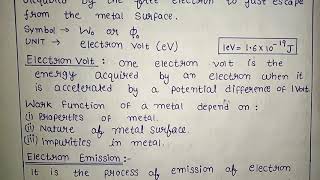 acquired by the free electron to just escape
from the metal surface.
Symbol → W₀ or Φ₀
UNIT → electron volt (eV)
1eV = 1.6×10⁻¹⁹ J
Electron Volt :- one electron volt is the
energy acquired by an electron when it
is accelerated by a potential difference of 1 Volt
Work function of a metal depend on :
(i) Properties of metal.
(ii) Nature of metal surface.
(iii) Impurities in metal.
Electron Emission :-
It is the process of emission of electron